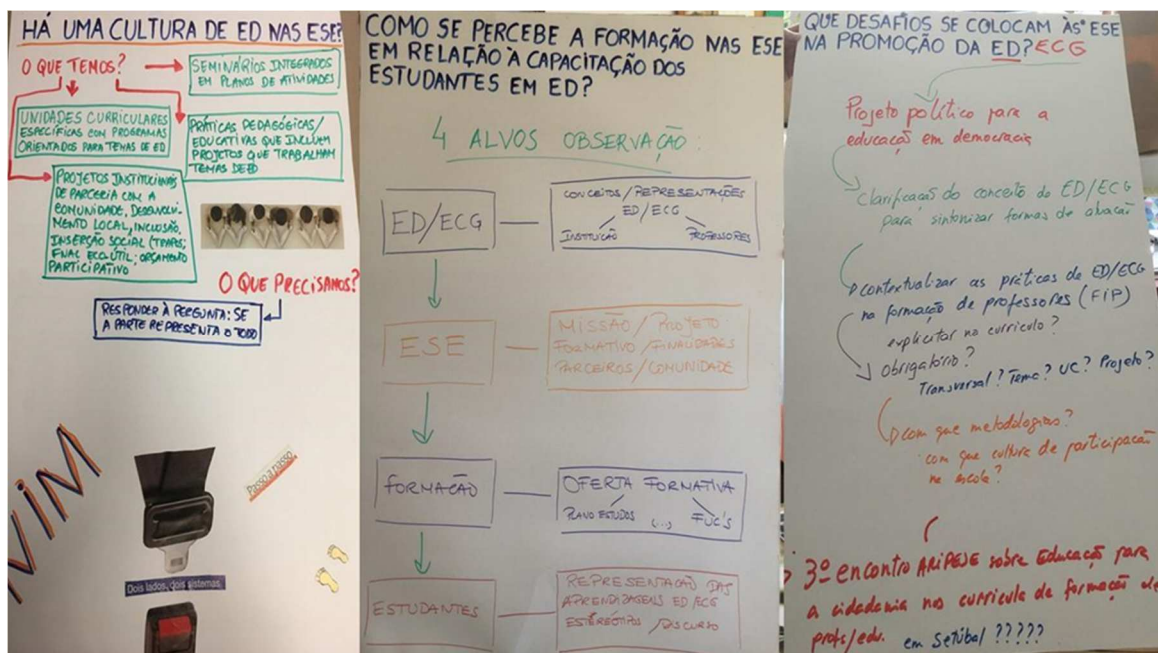 HÁ UMA CULTURA DE ED NAS ESE?
O QUE TEMOS?
SEMINÁRIOS INTEGRADOS
EM PLANOS DE ATIVIDADES
UNIDADES CURRICULARES
ESPECÍFICAS COM PROGRAMAS
ORIENTADOS PARA TEMAS DE ED
PRÁTICAS PEDAGÓGICAS/
EDUCATIVAS QUE INCLUEM
PROJETOS QUE TRABALHAM
TEMAS DE ED
PROJETOS INSTITUCIONAIS
DE PARCERIA COM A
COMUNIDADE, DESENVOLVI-
MENTO LOCAL, INCLUSÃO,
INSERÇÃO SOCIAL (TRAPOS;
FNAC ECO-ÚTIL; ORÇAMENTO
PARTICIPATIVO
O QUE PRECISAMOS?
RESPONDER À PERGUNTA: SE
A PARTE REPRESENTA O TODO
NIM
Passo a passo
Dois lados, dois sistemas.
COMO SE PERCEBE A FORMAÇÃO NAS ESE
EM RELAÇÃO À CAPACITAÇÃO DOS
ESTUDANTES EM ED?
4 ALVOS OBSERVAÇÃO:
ED/ECG
CONCEITOS/REPRESENTAÇÕES
ED/ECG
INSTITUIÇÃO PROFESSORES
ESE
MISSÃO/PROJETO
FORMATIVO/FINALIDADES
PARCEIROS/COMUNIDADE
FORMAÇÃO
OFERTA FORMATIVA
PLANO ESTUDOS (...) FUC'S
ESTUDANTES
REPRESENTAÇÃO DAS
APRENDIZAGENS ED/ECG
ESTEREÓTIPOS/DISCURSO
QUE DESAFIOS SE COLOCAM ÀS ESE
NA PROMOÇÃO DA ED? ECG
Projeto político para a
educação em democracia
Clarificação do conceito de ED/ECG
para sintonizar formas de atuação
contextualizar as práticas de ED/ECG
na formação de professores (FIP)
explicitar no currículo?
Obrigatório?
Transversal? Tema? UC? Projeto?
com que metodologias?
com que cultura de participação
na escola?
3º encontro ARIPESE sobre Educação para
a cidadania nos curricula de formação de
profs/edu. em Setúbal ?????